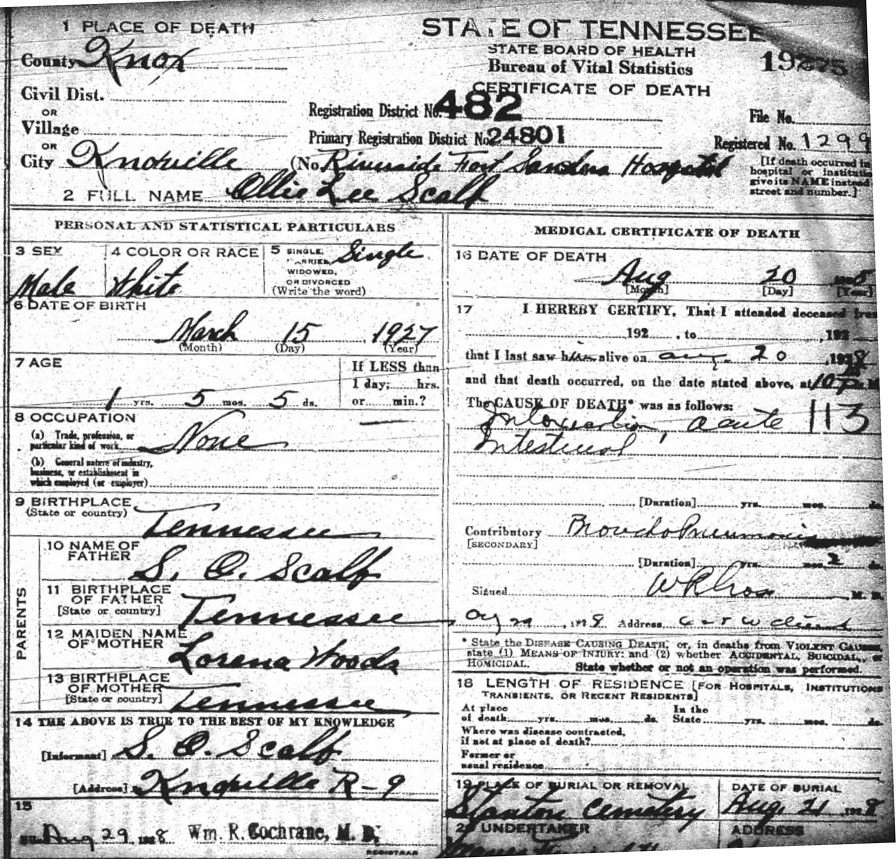 1 PLACE OF DEATH
County Knox
Civil Dist.
OR
Village
OR
City Knoxville (No. Riverside Fort Sanders Hospital
2 FULL NAME Ollie Lee Scalf
STATE OF TENNESSEE
STATE BOARD OF HEALTH
Bureau of Vital Statistics
CERTIFICATE OF DEATH
Registration District No. 482
Primary Registration District No. 24801
File No.
Registered No. 1299
[If death occurred in
hospital or institution
give its NAME instead
street and number.]
PERSONAL AND STATISTICAL PARTICULARS
3 SEX
Male
4 COLOR OR RACE
White
5 SINGLE, Single
MARRIED,
WIDOWED,
OR DIVORCED
(Write the word)
6 DATE OF BIRTH
March 15 1927
(Month) (Day) (Year)
7 AGE
1 yrs. 5 mos. 5 ds.
If LESS than
1 day; hrs.
or min.?
8 OCCUPATION
(a) Trade, profession, or
particular kind of work None
(b) General nature of industry,
business, or establishment in
which employed (or employer)
9 BIRTHPLACE
(State or country) Tennessee
PARENTS
10 NAME OF
FATHER S. O. Scalf
11 BIRTHPLACE
OF FATHER
[State or country] Tennessee
12 MAIDEN NAME
OF MOTHER Lorena Woods
13 BIRTHPLACE
OF MOTHER
[State or country] Tennessee
14 THE ABOVE IS TRUE TO THE BEST OF MY KNOWLEDGE
[Informant] S. O. Scalf
[Address] Knoxville R-9
15
Aug 29 1928 Wm. R. Cochrane, M. D.
REGISTRAR
MEDICAL CERTIFICATE OF DEATH
16 DATE OF DEATH
Aug 20
[Month] [Day] [Year]
17 I HEREBY CERTIFY, That I attended deceased from
192 , to , 192
that I last saw him alive on Aug. 20 , 1928
and that death occurred, on the date stated above, at 10 P. M
The CAUSE OF DEATH* was as follows:
Intoxication, acute 113
Intestinal
[Duration] yrs. mos. ds.
Contributory BronchoPneumonia
[SECONDARY]
[Duration] yrs. mos. 2
Signed M. D.
, 1928 Address
* State the DISEASE CAUSING DEATH, or, in deaths from VIOLENT CAUSES,
state (1) MEANS OF INJURY: and (2) whether ACCIDENTAL, SUICIDAL, or
HOMICIDAL. State whether or not an operation was performed.
18 LENGTH OF RESIDENCE [FOR HOSPITALS, INSTITUTIONS
TRANSIENTS, OR RECENT RESIDENTS]
At place In the
of death yrs. mos. ds. State yrs. mos. ds.
Where was disease contracted,
if not at place of death?
Former or
usual residence
19 PLACE OF BURIAL OR REMOVAL
Stanton Cemetery
DATE OF BURIAL
Aug 21 1928
20 UNDERTAKER
ADDRESS